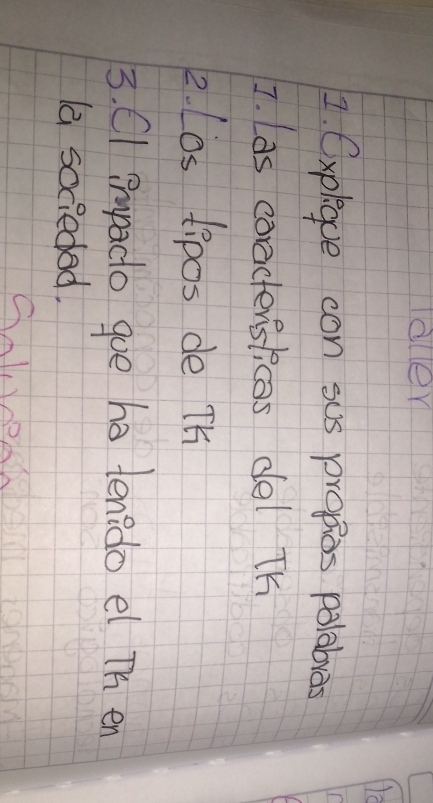 Taller
1. Explique con sus propias palabras
1. Las caracteristicas del Th
2. Los tipos de Th
3. El impacto que ha tenido el Th en
la sociedad.
Solución